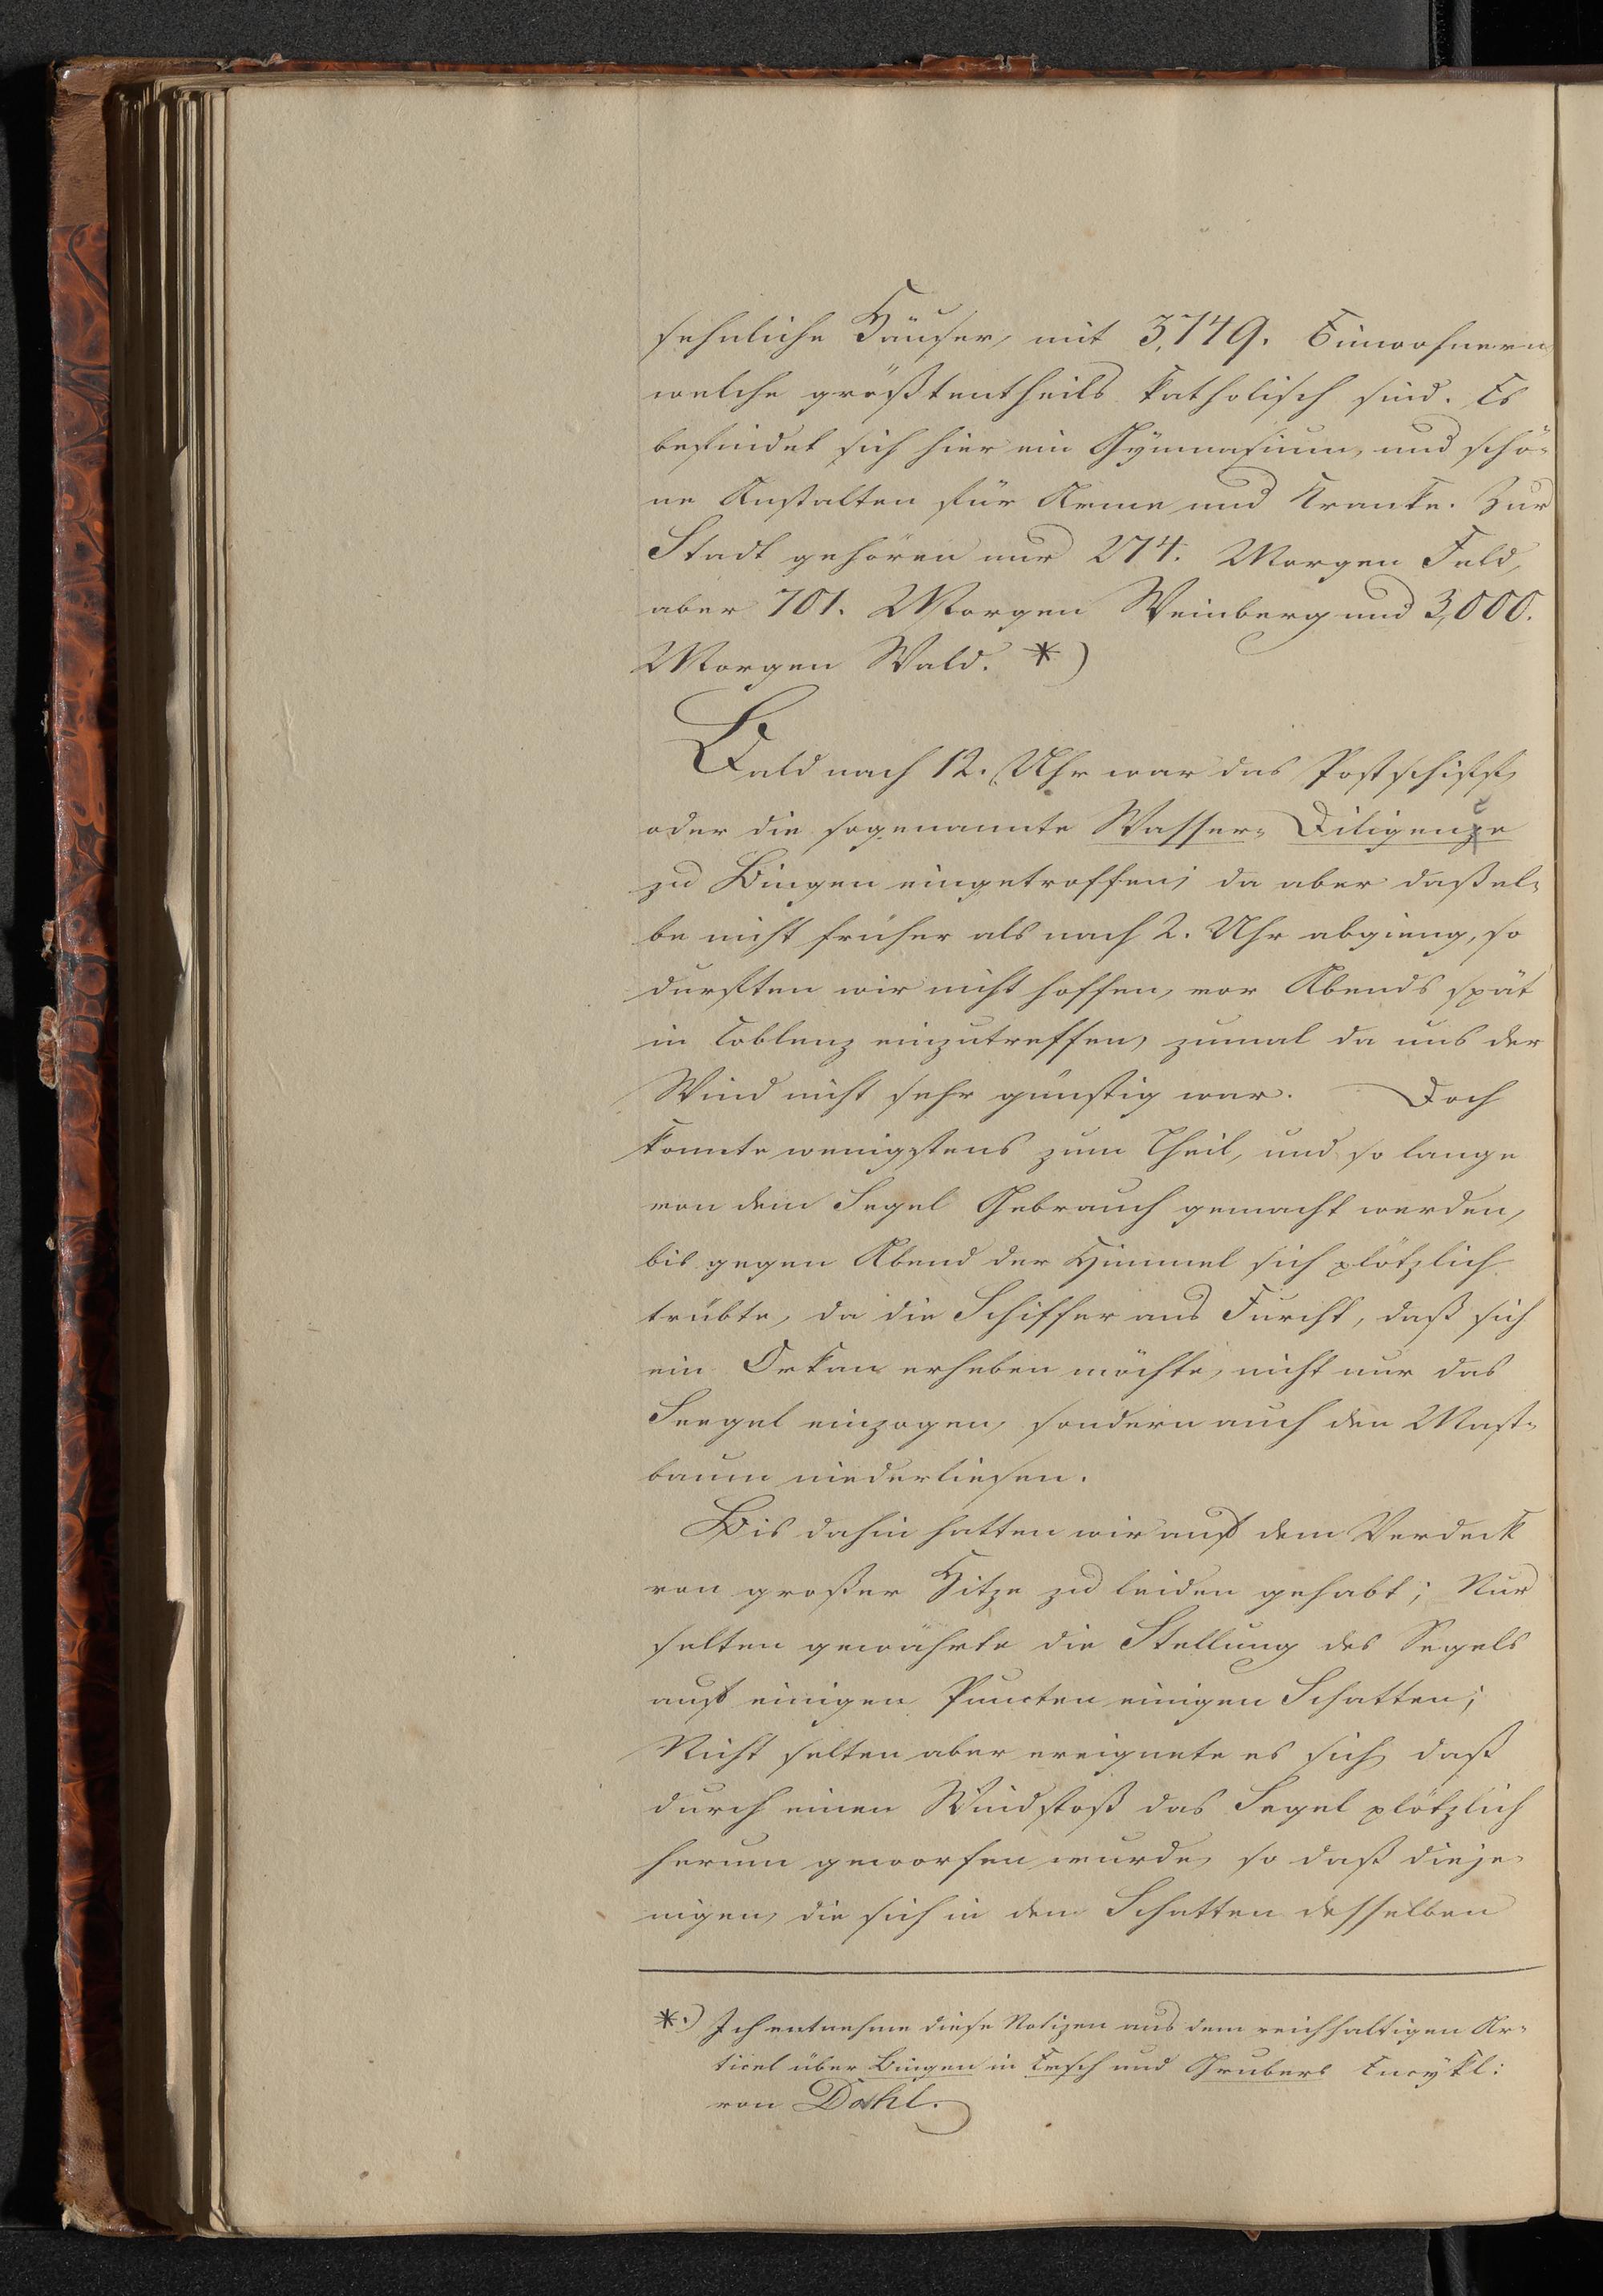 sehnliche Häuser, mit 3,749. Einwohnern
welche größtentheils katholisch sind. Es
befindet sich hier ein Gymnasium, und schö-
ne Anstalten für Arme und Kranke. Zur
Stadt gehören nur 274. Morgen Feld,
aber 701. Morgen Weinberg und 3,000.
Morgen Wald. *)
Bald nach 12. Uhr war das Postschiff,
oder die sogenannte Wasser- Diligence
zu Bingen eingetroffen; da aber daßel-
be nicht früher als nach 2. Uhr abgieng, so
durften wir nicht hoffen, vor Abends spät
in Coblenz einzutreffen, zumal da uns der
Wind nicht sehr günstig war. Doch
konnte wenigstens zum Theil, und so lange
von dem Segel Gebrauch gemacht werden,
bis gegen Abend der Himmel sich plötzlich
trübte, da die Schiffer aus Furcht, daß sich
ein Orkan erheben möchte, nicht nur das
Seegel einzogen, sondern auch den Mast-
baum niederliesen.
Bis dahin hatten wir auf dem Verdeck
von großer Hitze zu leiden gehabt; Nur
selten gewährte die Stellung des Segels
auf einigen Puncten einigen Schatten;
Nicht selten aber ereignete es sich, daß
durch einen Windstoß das Segel plötzlich
herum geworfen wurde, so daß dieje-
nigen, die sich in dem Schatten desselben
*.) Ich entnehme diese Notizen aus dem reichhaltigen Ar-
ticel über Bingen in Ersch und Grubers Encykl:
von Dahl.